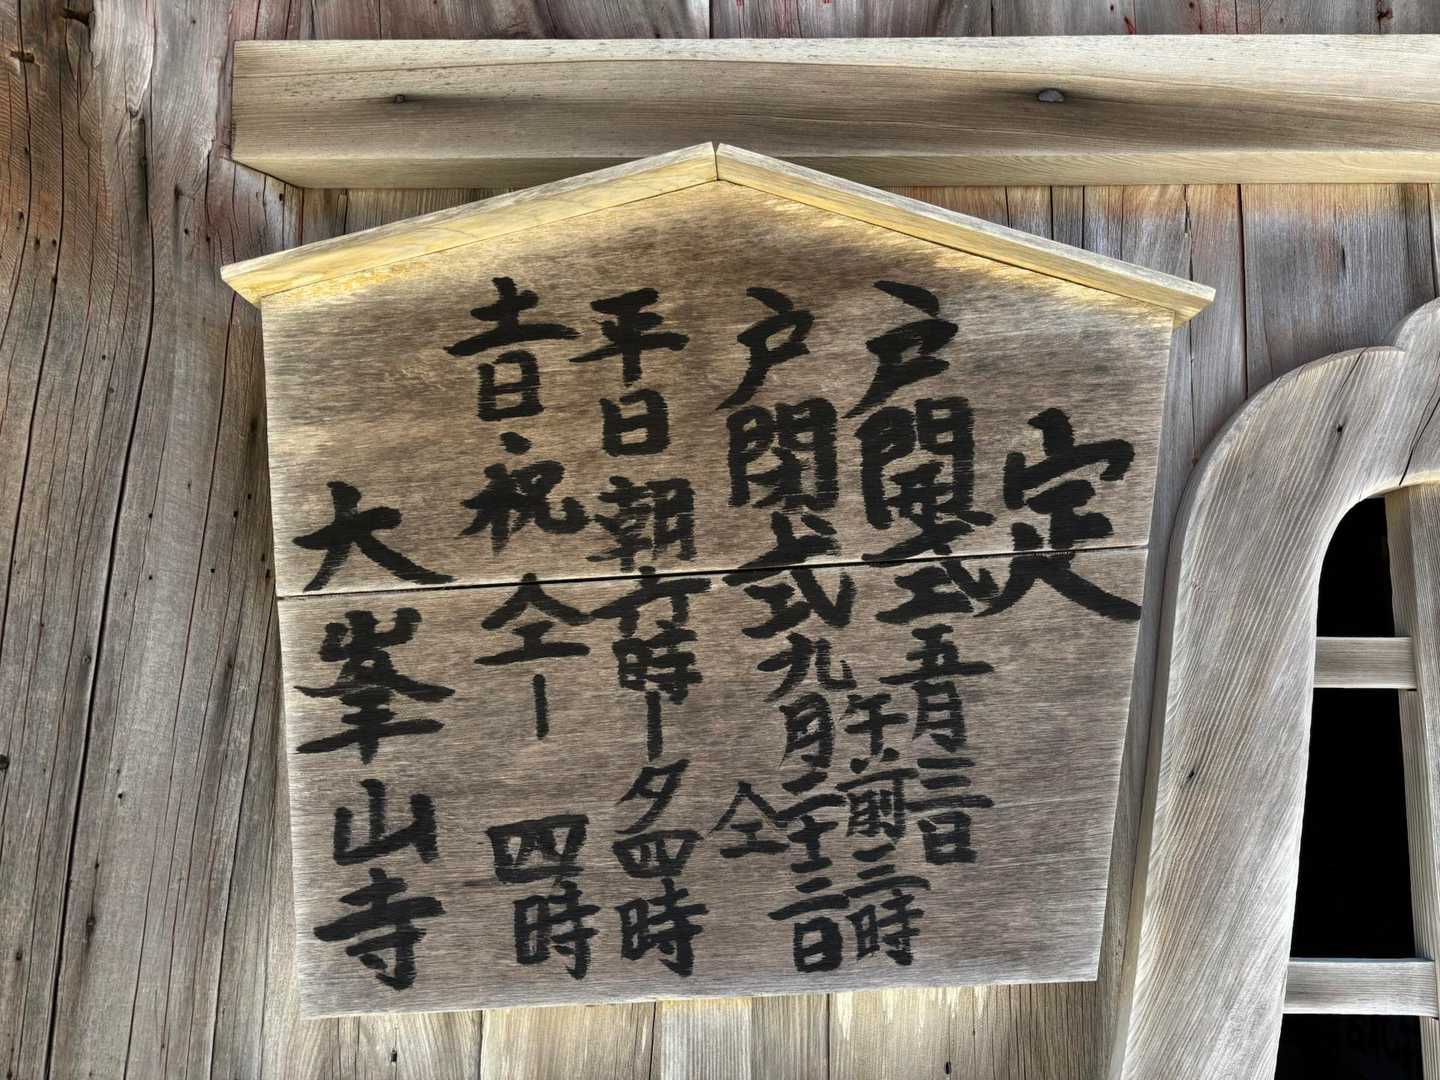 定
戸開式 五月三日
午前三時
戸閉式 九月二十二日
仝
平日 朝六時ー夕四時
土日・祝 仝ー 四時
大峯山寺